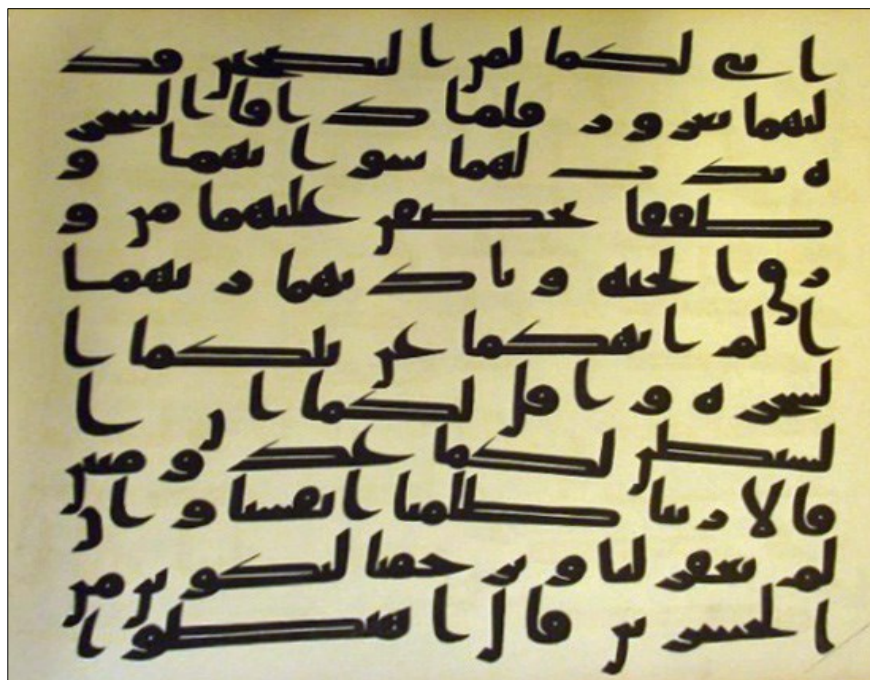 انى لكما لمن النصحين فد
ليهما بغرور فلما ذاقا الشجر
ة بدت لهما سواتهما و
طفقا يخصفن عليهما من و
رق الجنة وناديهما ربهما
الم انهكما عن تلكما ا
لشجرة واقل لكما ان ا
لشيطن لكما عدو مبين
قالا ربنا ظلمنا انفسنا وان
لم تغفر لنا وترحمنا لنكونن من
الخسرين قال اهبطوا